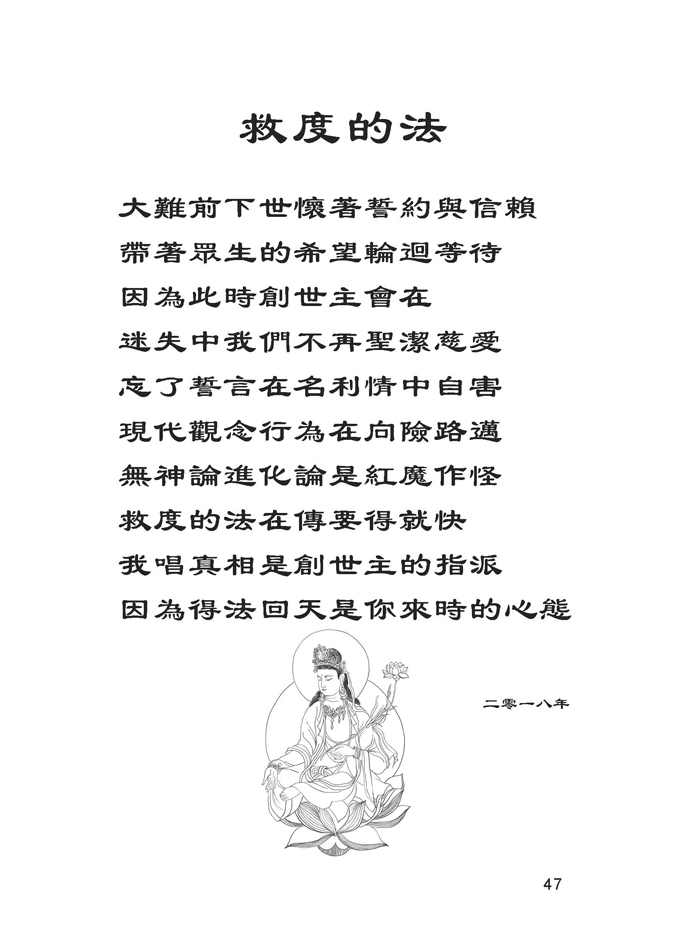 救度的法
大難前下世懷著誓約與信賴
帶著眾生的希望輪迴等待
因為此時創世主會在
迷失中我們不再聖潔慈愛
忘了誓言在名利情中自害
現代觀念行為在向險路邁
無神論進化論是紅魔作怪
救度的法在傳要得就快
我唱真相是創世主的指派
因為得法回天是你來時的心態
二零一八年
47